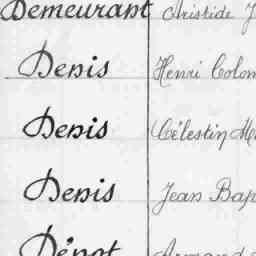 Demeurant Aristide J
Denis Henri Colom
Denis Célestin M
Denis Jean Bap
Dénot Armand